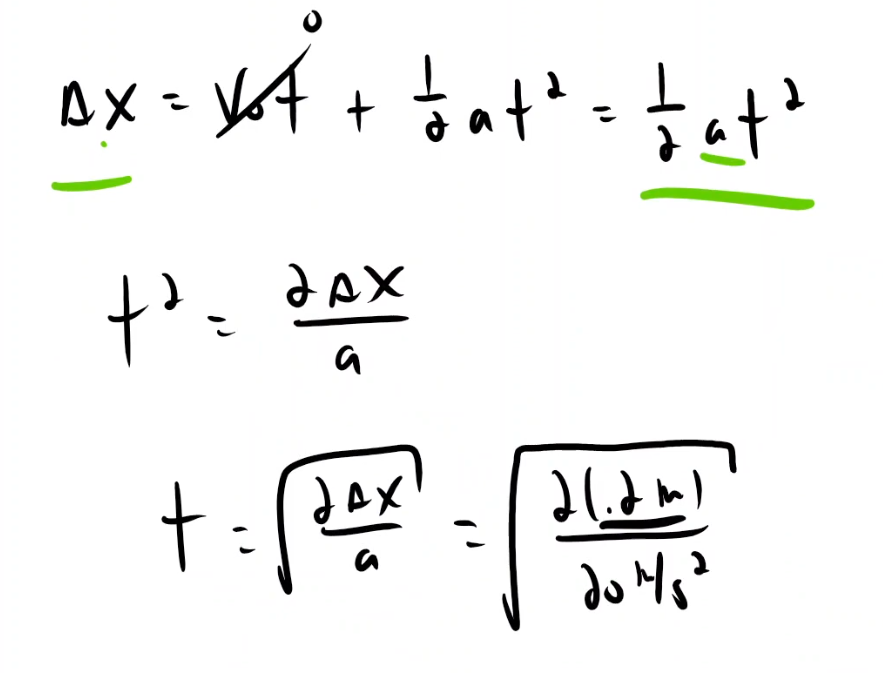 0
Δx = V₀t + 1/2 at² = 1/2 at²
t² = 2Δx/a
t = √(2Δx/a) = √(2(.2m)/20 m/s²)